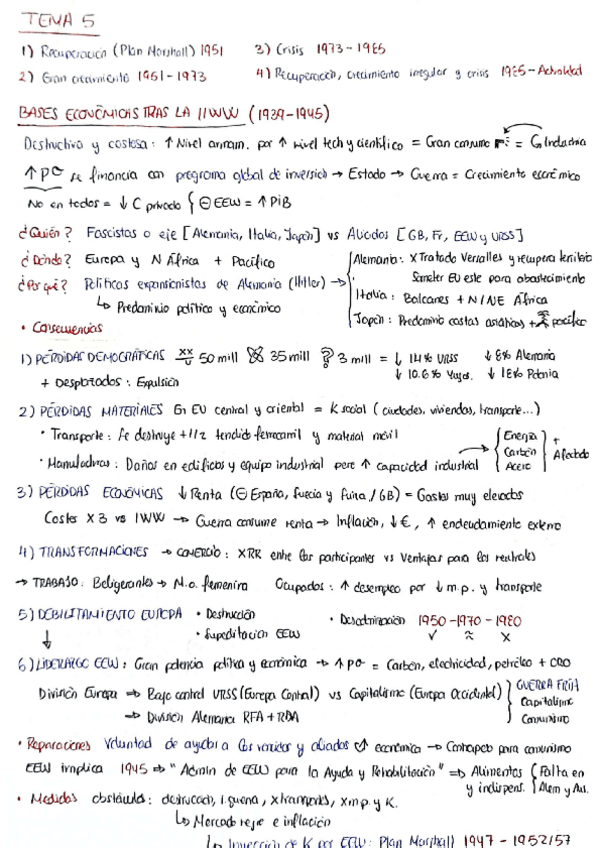 TEMA 5
1) Recuperación (Plan Marshall) 1951
3) Crisis 1973-1985
2) Gran crecimiento 1951-1973
4) Recuperación, crecimiento irregular y crisis 1985-Actualidad
BASES ECONÓMICAS TRAS LA IIWW (1939-1945)
Destructiva y costosa: ↑ Nivel armam. por ↑ nivel tech y científico = Gran consumo = G Industria
↑ pº se financia con programa global de inversión → Estado → Guerra = Crecimiento económico
No en todos = ↓ C privado { ⊖ EEUU = ↑ PIB
¿Quién? Fascistas o eje [Alemania, Italia, Japón] vs Aliados [GB, Fr, EEUU y URSS]
¿Dónde? Europa y N África + Pacífico
¿Por qué? Políticas expansionistas de Alemania (Hitler) →
↳ Predominio político y económico
Alemania: X Tratado Versalles y recupera territorio
Someter EU este para abastecimiento
Italia: Balcanes + N/NE África
Japón: Predominio costas asiáticas + pacífico
• Consecuencias
1) PÉRDIDAS DEMOGRÁFICAS 50 mill 35 mill 3 mill = ↓ 14% URSS ↓ 8% Alemania
+ Desplazados: Expulsión ↓ 10.6% Yugos. ↓ 18% Polonia
2) PÉRDIDAS MATERIALES En EU central y oriental = K social (ciudades, viviendas, transporte...)
• Transporte: Se destruye + 1/2 tendido ferrocarril y material móvil
• Manufacturas: Daños en edificios y equipo industrial pero ↑ capacidad industrial → { Energía Carbón Acero } + Afectado
3) PÉRDIDAS ECONÓMICAS ↓ Renta (⊖ España, Suecia y Suiza / GB) = Gastos muy elevados
Costes X 3 vs IWW → Guerra consume renta → Inflación, ↓ €, ↑ endeudamiento externo
4) TRANSFORMACIONES → COMERCIO: entre los participantes vs Ventajas para los neutrales
→ TRABAJO: Beligerantes → M.o. femenina Ocupados: ↑ desempleo por ↓ m.p. y transporte
5) DEBILITAMIENTO EUROPA • Destrucción • Descolonización 1950-1970-1980
↓ • Supeditación EEUU ✓ ≈ X
6) LIDERAZGO EEUU: Gran potencia política y económica → ↑ pº = Carbón, electricidad, petróleo + ORO
División Europa → Bajo control URSS (Europa Central) vs Capitalismo (Europa Occidental) } GUERRA FRÍA
→ División Alemania RFA + RDA Capitalismo Comunismo
• Reparaciones Voluntad de ayudar a los vencidos y aliados económica → Contrapeso para comunismo
EEUU implica 1945 ⇒ "Admin de EEUU para la Ayuda y Rehabilitación" ⇒ Alimentos y indispens. { Falta en Alem y Aus.
• Medidas obstáculos: destrucción, i. guerra, X transportes, X mp y K.
↳ Mercado negro e inflación
↳ Inversión de K por EEUU: Plan Marshall 1947 - 1952/57